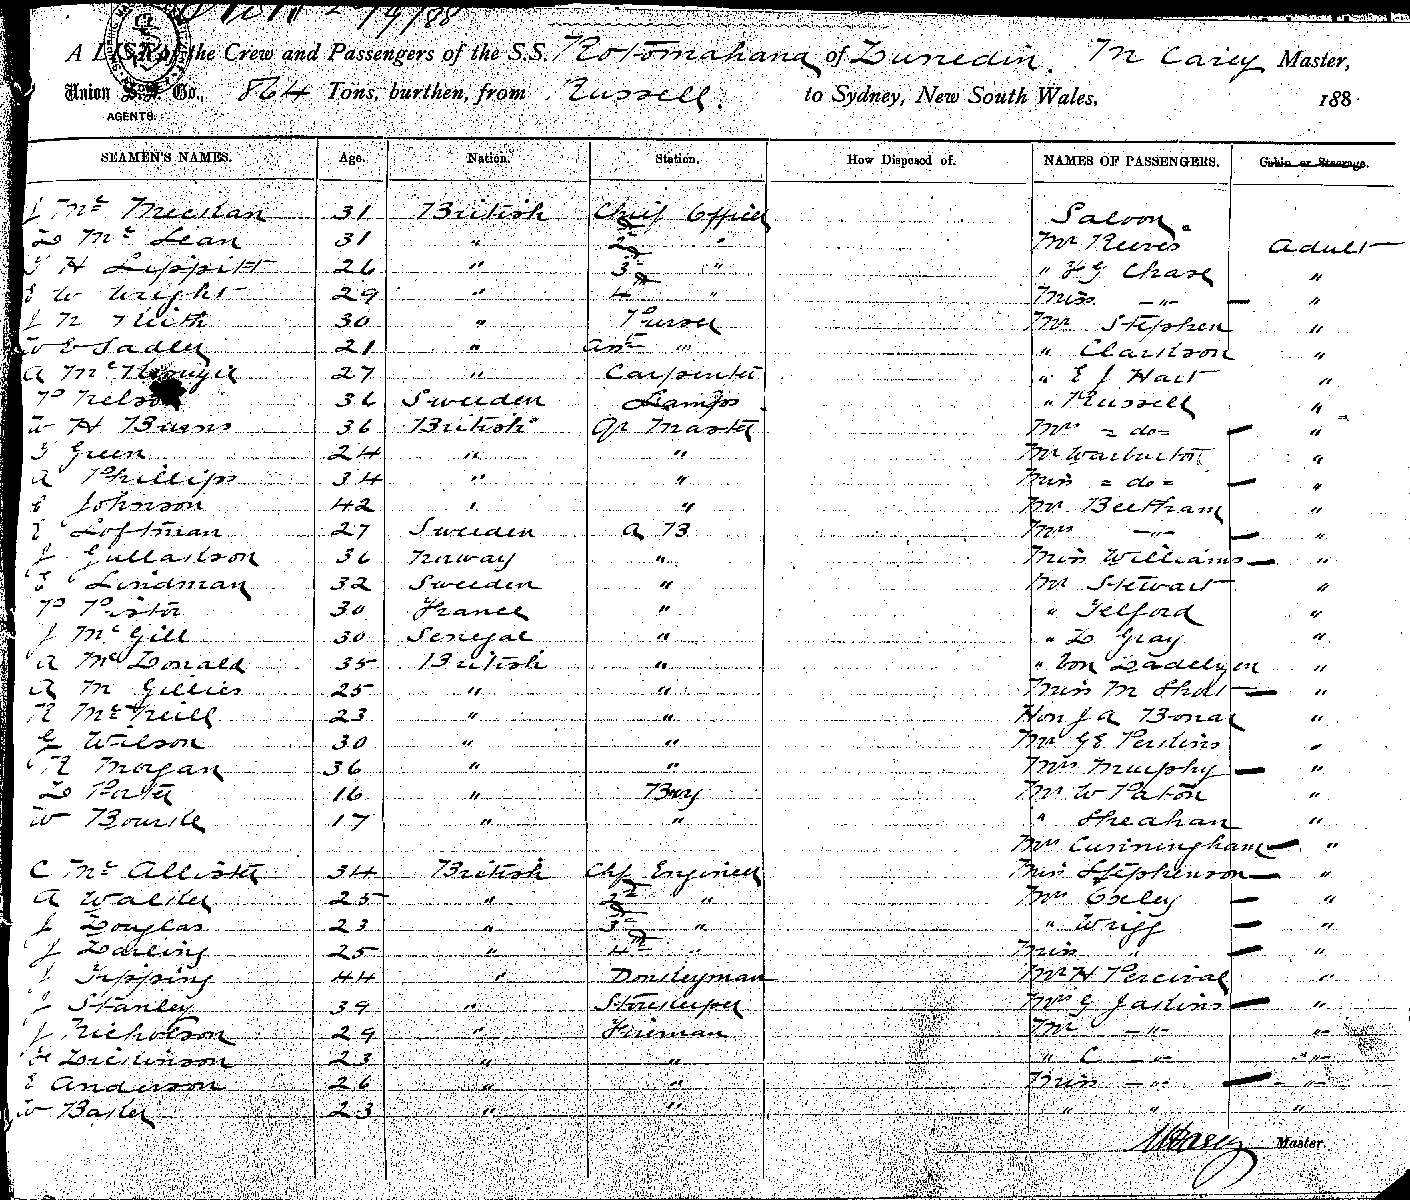 2/4/88
A LIST of the Crew and Passengers of the S.S. Rotomahana of Dunedin. M Carey Master,
Union S.S. Co., 864 Tons, burthen, from Russell. to Sydney, New South Wales, 188
AGENTS.
SEAMEN'S NAMES. Age. Nation. Station. How Disposed of. NAMES OF PASSENGERS. Cabin or Steerage.
J Mc 31 British Chief Officer Saloon
D Mc Lean 31 " 2nd " Mr Reeves Adult
H Lippitt 26 " 3rd " " F G Chase "
E W Wright 29 " 4th " Miss -"- — "
J N Keith 30 " Purser Mr Stephen "
W E Sadler 21 " Asst " " Clarkson "
A Mc 27 " Carpenter " E J Hart "
P Nelson 36 Sweeden Lamps " Russell "
W H Burns 36 British Qr Master Mrs = do = — "
G Green 24 " " Mr Warburton "
A Phillips 34 " " Miss = do = — "
C Johnson 42 " " Mr Beetham "
Loftman 27 Sweeden A B Mrs -"- — "
J Gullakson 36 Norway " Miss Williams — "
E Lindman 32 Sweeden " Mr Stewart "
P Pistor 30 France " " Telford "
J McGill 30 Senegal " " D Gray "
A McDonald 35 British " " Von "
A M Gillies 25 " " Miss M Short — "
R McNeill 23 " " Hon J A Bonar "
G Wilson 30 " " Mr G E Perkins "
R Morgan 36 " " Mrs Murphy — "
D Porter 16 " Boy Mr W Paton "
W Bourke 17 " " " Sheahan "
Mrs Cunningham — "
C Mc Allister 34 British Chf Engineer Miss Stephenson — "
A Walker 25 " 2nd " Mrs Oxley — "
J Douglas 23 " 3rd " " Wrigg — "
J Darling 25 " 4th " Miss " — "
J Tipping 44 " Donkeyman Mr H Percival "
J Stanley 39 " Storekeeper Mrs G Jakins — "
J Nicholson 29 " Fireman Mr -"- -"-
H Dickinson 23 " " " C -"- -"-
E Anderson 26 " " Miss -"- — -"-
W Baker 23 " " " " "
M Carey Master